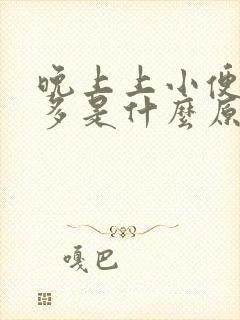 晚上上小便
多是什麼原
嘎巴